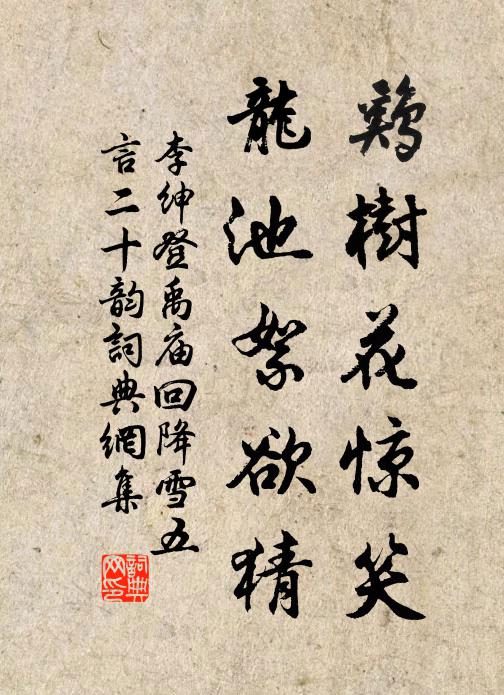 鷄樹花惊笑
龍池絮欲猜
李紳登禹庙回降雪五
言二十韵詞典網集
詞典
网印